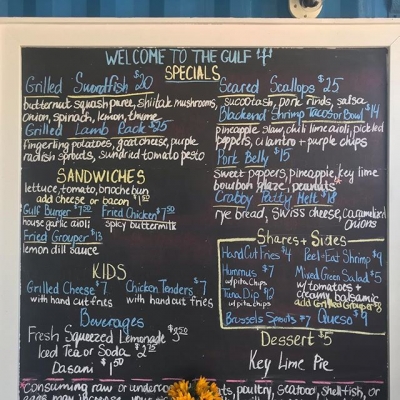 WELCOME TO THE GULF
SPECIALS
Grilled Swordfish $20
butternut squash puree, shiitak mushrooms,
onion, spinach, lemon, thyme
Grilled Lamb Rack $25
fingerling potatoes, goat cheese, purple
radish sprouts, sundried tomato pesto
Seared Scallops $25
succotash, pork rinds, salsa
Blackend Shrimp Tacos or Bowl $14
pineapple slaw, chili lime aioli, pickled
peppers, cilantro + purple chips
Pork Belly $15
sweet peppers, pineapple, key lime
bourbon glaze, peanuts*
Crabby Patty Melt $18
rye bread, swiss cheese, caramelized
onions
SANDWICHES
lettuce, tomato, brioche bun
add cheese or bacon $1.50
Gulf Burger $7.50 Fried Chicken $7.50
house garlic aioli spicy buttermilk
Fried Grouper $13
lemon dill sauce
KIDS
Grilled Cheese $7 Chicken Tenders $7
with hand cut fries with hand cut fries
Beverages
Fresh Squeezed Lemonade $3.50
Iced Tea or Soda $2.75
Dasani $1.50
Shares + Sides
Hand Cut Fries $4 Peel-Eat Shrimp $9
Hummus $7 Mixed Green Salad $5
w/pita chips w/tomatoes +
Tuna Dip $12 creamy balsamic
w/pita chips add Grilled Grouper $8
Brussels Sprouts $7 Queso $9
Dessert $5
Key Lime Pie
*Consuming raw or underco ts, poultry, seafood, shellfish, or
eggs may increase your